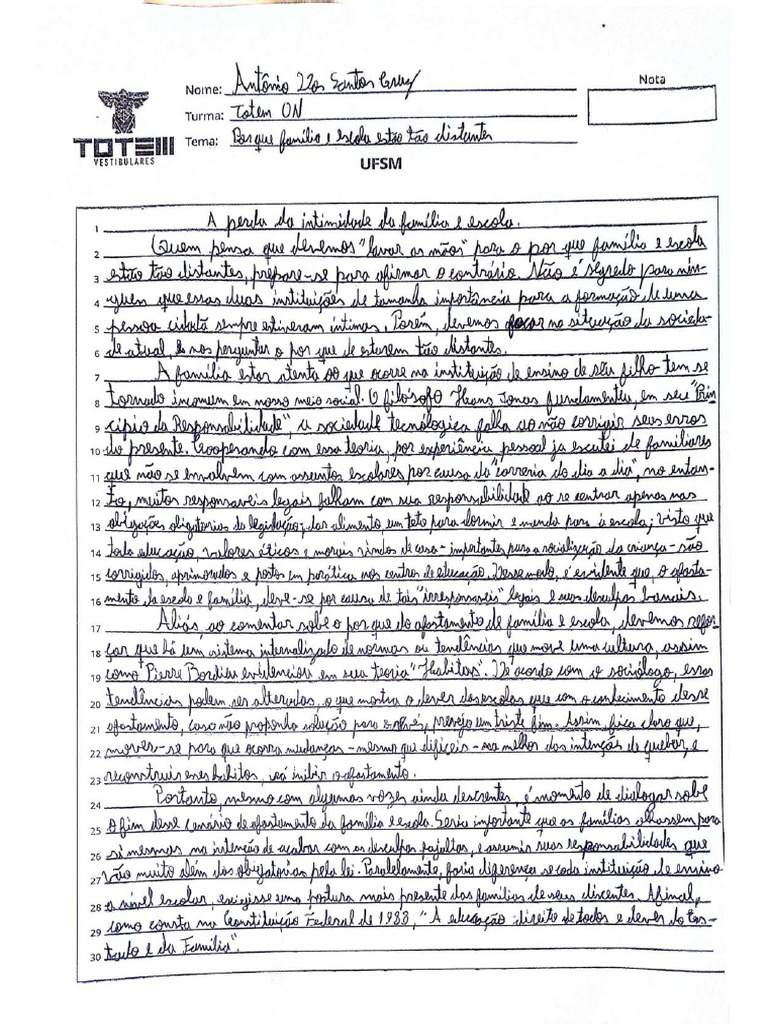 Nome: Antônio Dos Santos Cruz
Nota
Turma: Totem ON
TOTEM
VESTIBULARES
Tema: Por que família e escola estão tão distantes
UFSM
1 A perda da intimidade da família e escola.
2 Quem pensa que devemos "lavar as mãos" para o por que família e escola
3 estão tão distantes, prepare-se para afirmar o contrário. Não é segredo para nin-
4 guem que essas duas instituições de tamanha importância para a formação de uma
5 pessoa cidatã sempre estiveram íntimas. Porém, devemos focar na situação da socieda-
6 de atual, e nos perguntar o por que de estarem tão distantes.
7 A família estar atenta ao que ocorre na instituição de ensino de seu filho tem se
8 tornado incomum em nosso meio social. O filósofo Hans Jonas fundamentou, em seu "Prin-
9 cípio da Responsabilidade", a sociedade tecnológica falha ao não corrigir seus erros
10 do presente. Cooperando com essa teoria, por experiência pessoal ja escutei de familiares
11 que não se envolvem com assuntos escolares por causa da "correria do dia a dia", no entan-
12 to, muitos responsavéis legais falham com sua responsabilidade ao se centrar apenas nas
13 obrigações obigatórias da legislação; dar alimento um teto para dormir e manda para à escola; visto que
14 toda educação, valores éticos e morais vindos de casa - importantes para a socialização da criança - são
15 corrigidos, aprimorados e postos em porática nos centros de educação. Desse modo, é evidente que, o afasta-
16 mento da escola e família, deve-se por causa de tais "irresponsaveis" legais e suas desculpas banais.
17 Aliás, ao comentar sobre o por que do afastamento de família e escola, devemos refor-
18 çar que há um sistema internalizado de normas ou tendências que move uma cultura, assim
19 como Pierre Bordieu evidenciou em sua teoria "Habitas". De acordo com o sociólogo, essas
20 tendências podem ser alteradas, o que mostra o dever das escolas que com o conhecimento desse
21 afastamento, caso não proponha solução para prevejo um triste fim. Assim fica claro que,
22 mover-se para que ocorra mudanças - mesmo que difíceis - na melhor das intenções de quebar, e
23 reconstruir esses habitos, irá inibir o afastamento.
24 Portanto, mesmo com algumas vozes ainda descrentes, é momento de dialogar sobre
25 o fim desse cenário de afastamento da família e escola. Seria importante que as famílias olhassem para
26 si mesmas na intenção de acabar com as desculpas fajultas, e assumir suas responsabilidades que
27 vão muito além das obrigatorias pela lei. Paralelamente, faria diferença se cada instituição de ensino
28 a nível escolar, exigisse uma postura mais presente das famílias de seus discentes. Afinal,
29 como consta na Constituição Federal de 1988, "A educação direito de todos e dever do Es-
30 tado e da Família".